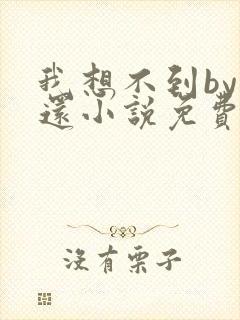 我想不到by
還小説免費
沒有栗子